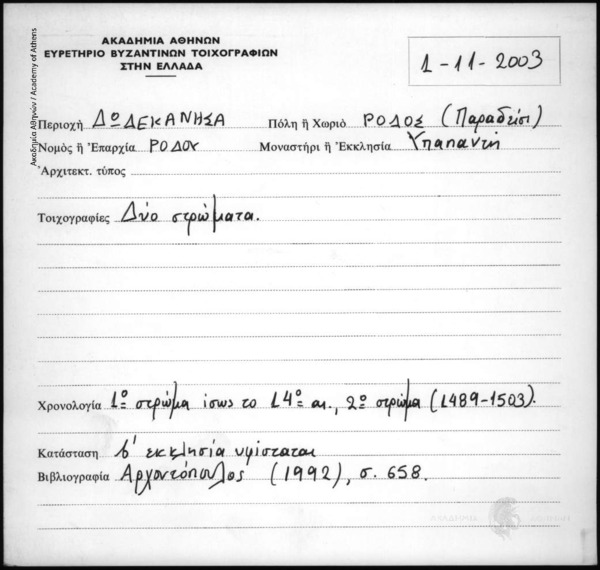 ΑΚΑΔΗΜΙΑ ΑΘΗΝΩΝ
ΕΥΡΕΤΗΡΙΟ ΒΥΖΑΝΤΙΝΩΝ ΤΟΙΧΟΓΡΑΦΙΩΝ
ΣΤΗΝ ΕΛΛΑΔΑ
1-11-2003
Ακαδημία Αθηνών / Academy of Athens
Περιοχή ΔωΔΕΚΑΝΗΣΑ Πόλη ἤ Χωριό ΡΟΔΟΣ (Παραδείσι)
Νομός ἤ Ἐπαρχία ΡΟΔΟΥ Μοναστήρι ἤ Ἐκκλησία Υπαπαντή
Ἀρχιτεκτ. τύπος
Τοιχογραφίες Δύο στρώματα.
Χρονολογία 1ο στρώμα ίσως το 14ο αι., 2ο στρώμα (1489-1503).
Κατάσταση εκκλησία υφίσταται
Βιβλιογραφία Αρχοντόπουλος (1992), σ. 658.